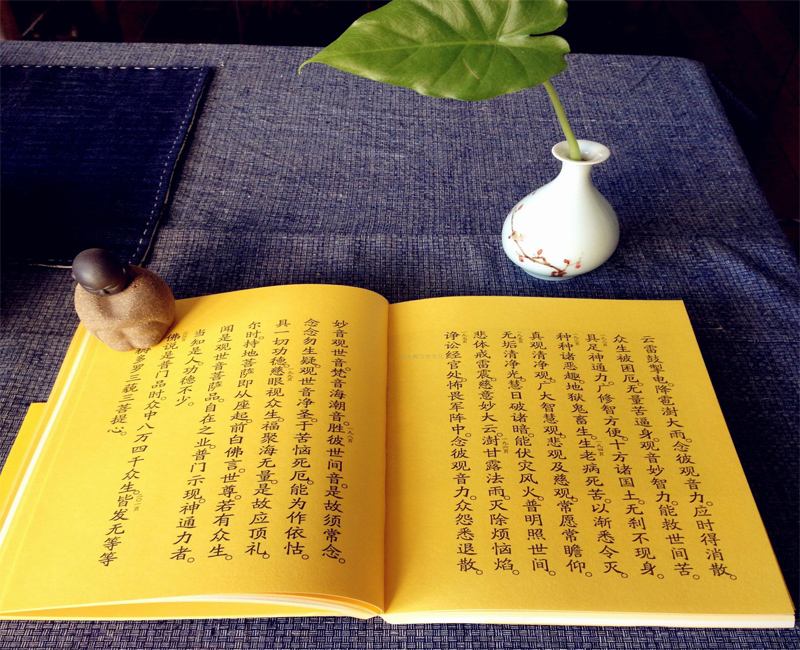 云雷鼓掣电。降雹澍大雨。念彼观音力。应时得消散。
众生被困厄。无量苦逼身。观音妙智力。能救世间苦。
具足神通力。广修智方便。十方诸国土。无刹不现身。
种种诸恶趣。地狱鬼畜生。生老病死苦。以渐悉令灭。
真观清净观。广大智慧观。悲观及慈观。常愿常瞻仰。
无垢清净光。慧日破诸暗。能伏灾风火。普明照世间。
悲体戒雷震。慈意妙大云。澍甘露法雨。灭除烦恼焰。
诤讼经官处。怖畏军阵中。念彼观音力。众怨悉退散。
妙音观世音。梵音海潮音。胜彼世间音。是故须常念。
念念勿生疑。观世音净圣。于苦恼死厄。能为作依怙。
具一切功德。慈眼视众生。福聚海无量。是故应顶礼。
尔时。持地菩萨即从座起。前白佛言。世尊。若有众生。
闻是观世音菩萨品。自在之业。普门示现。神通力者。
当知是人。功德不少。
佛说是普门品时。众中八万四千众生。皆发无等等
耨多罗三藐三菩提心。